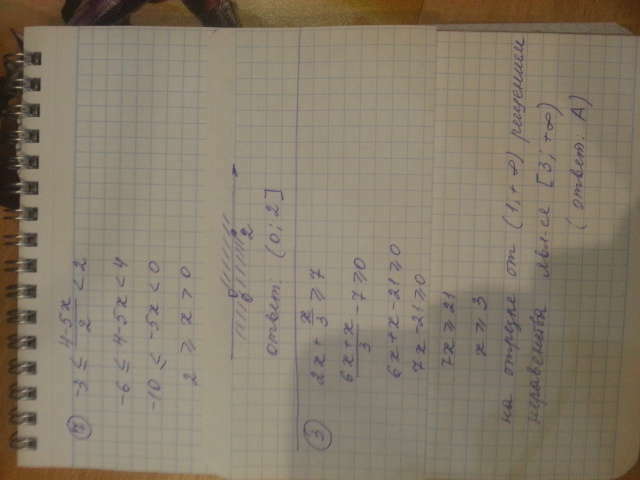 ② -3 ≤ (4-5x)/2 < 2
-6 ≤ 4-5x < 4
-10 ≤ -5x < 0
2 ≥ x > 0
0 2
ответ: (0; 2]
③ 2x + x/3 ≥ 7
(6x+x)/3 - 7 ≥ 0
6x+x-21 ≥ 0
7x-21 ≥ 0
7x ≥ 21
x ≥ 3
на отрезке от (1, +∞) решением
неравенства явл-се [3; +∞)
(ответ: А)